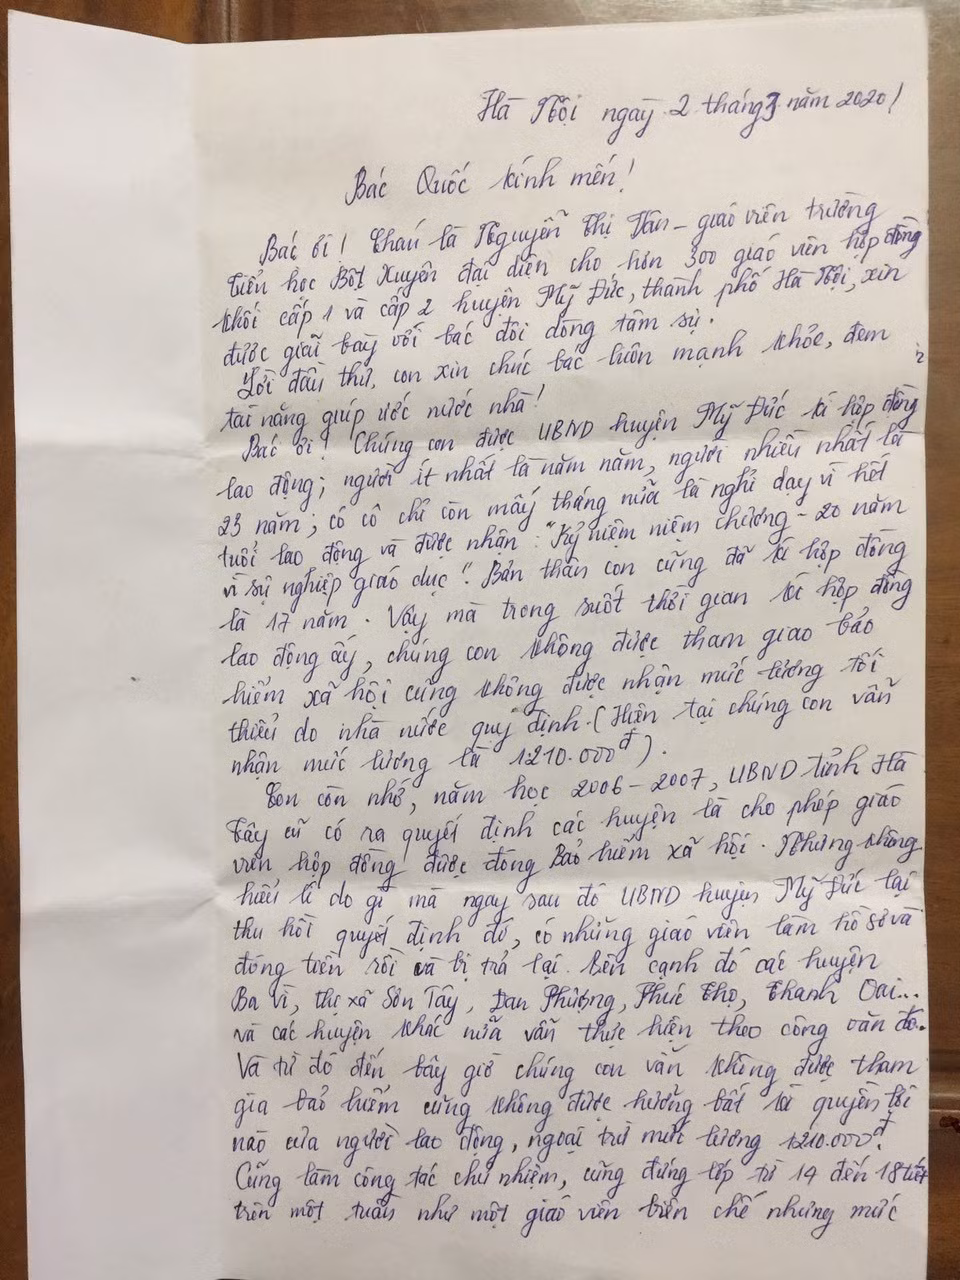 Hà Nội ngày 2 tháng 3 năm 2020!
Bác Quốc kính mến!
Bác ơi! Cháu là Nguyễn Thị Vân - giáo viên trường
tiểu học Bột Xuyên đại diện cho hơn 300 giáo viên hợp đồng
khối cấp 1 và cấp 2 huyện Mỹ Đức, thành phố Hà Nội, xin
được giãi bày với bác đôi dòng tâm sự.
Lời đầu thư, con xin chúc bác luôn mạnh khỏe, đem
tài năng giúp ước nước nhà!
Bác ơi! Chúng con được UBND huyện Mỹ Đức kí hợp đồng
lao động; người ít nhất là năm năm, người nhiều nhất là
23 năm; có cô chỉ còn mấy tháng nữa là nghỉ dạy vì hết
tuổi lao động và được nhận: "Kỷ niệm niệm chương - 20 năm
vì sự nghiệp giáo dục". Bản thân con cũng đã kí hợp đồng
là 17 năm. Vậy mà trong suốt thời gian kí hợp đồng
lao động ấy, chúng con không được tham giao bảo
hiểm xã hội cũng không được nhận mức lương tối
thiểu do nhà nước quy định. (Hiện tại chúng con vẫn
nhận mức lương là 1.210.000đ).
Con còn nhớ, năm học 2006-2007, UBND tỉnh Hà
Tây cũ có ra quyết định các huyện là cho phép giáo
viên hợp đồng được đóng Bảo hiểm xã hội. Nhưng không
hiểu lí do gì mà ngay sau đó UBND huyện Mỹ Đức lại
thu hồi quyết định đó, có những giáo viên làm hồ sơ và
đóng tiền rồi và bị trả lại. Bên cạnh đó các huyện
Ba Vì, thị xã Sơn Tây, Đan Phượng, Phúc Thọ, Thanh Oai...
và các huyện khác nữa vẫn thực hiện theo công văn đó.
Và từ đó đến bây giờ chúng con vẫn không được tham
gia bảo hiểm cũng không được hưởng bất kì quyền lợi
nào của người lao động, ngoại trừ mức lương 1.210.000đ.
Cũng làm công tác chủ nhiệm, cũng đứng lớp từ 14 đến 18 tiết
trên một tuần như một giáo viên biên chế nhưng mức